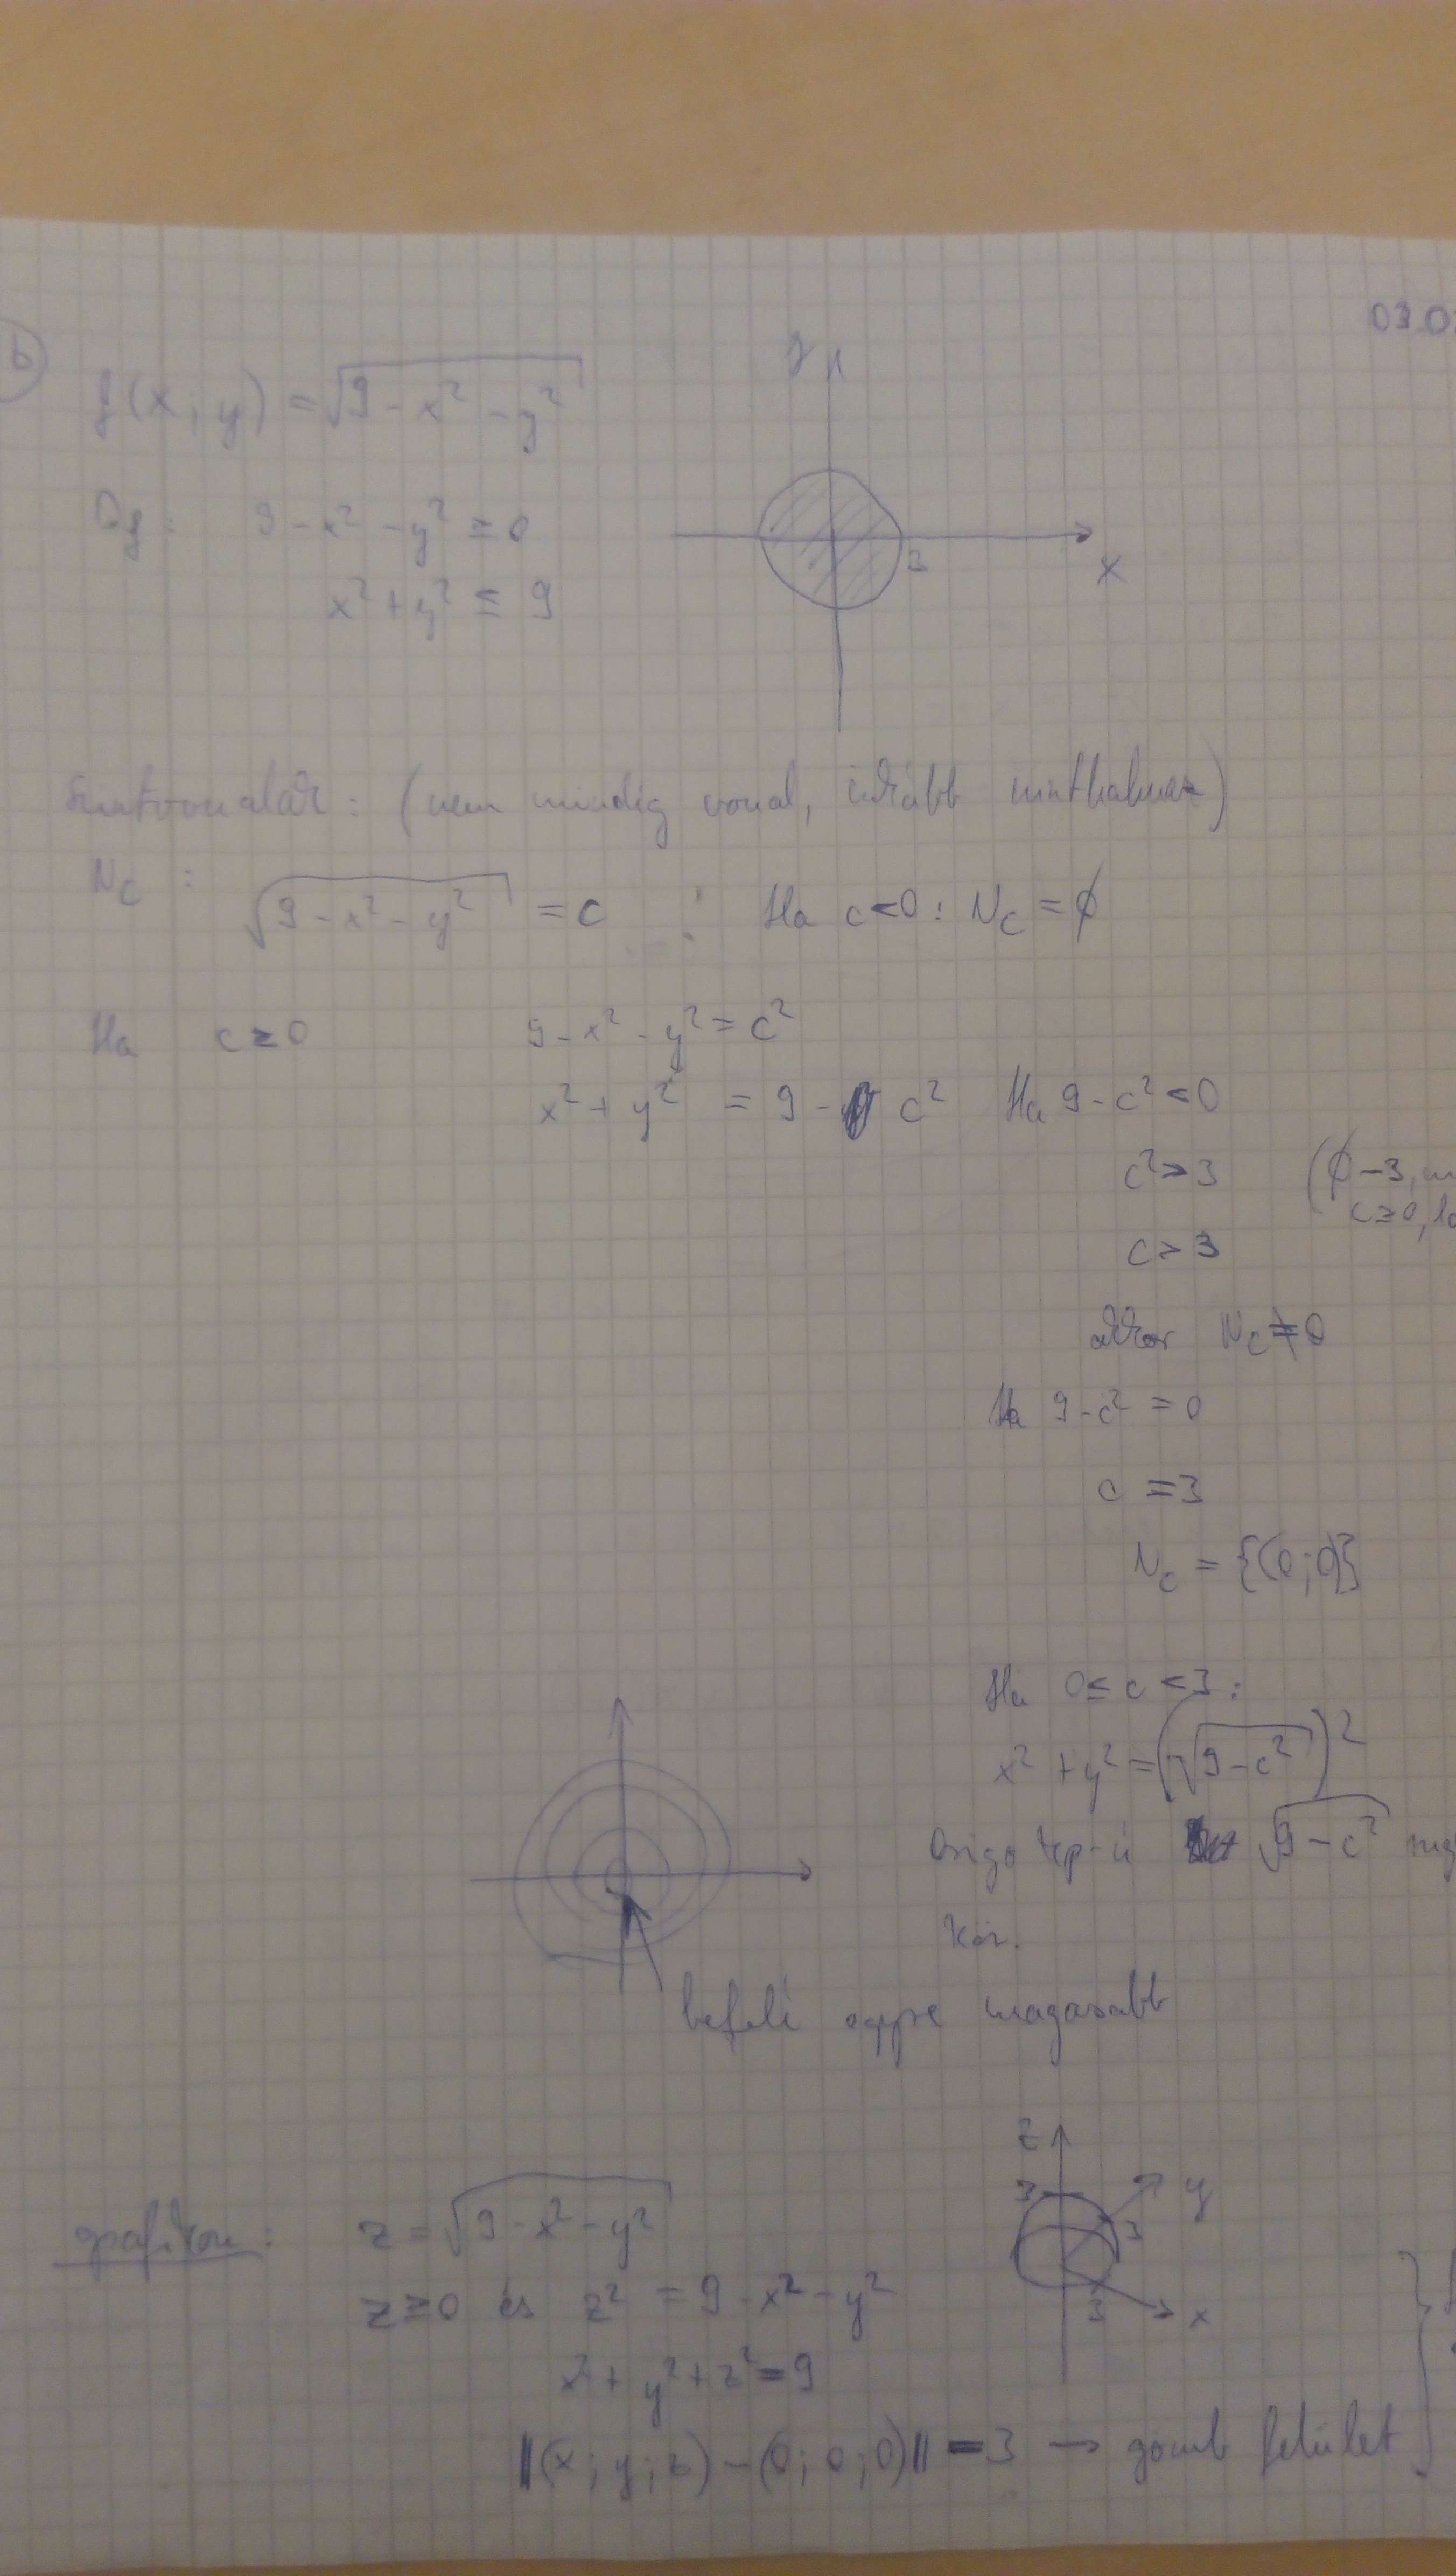 03.0
b)
f(x; y) = √(9 - x² - y²)
y
x
3
Df: 9 - x² - y² ≥ 0
x² + y² ≤ 9
Szintvonalak: (nem mindig vonal, inkább szinthalmaz)
Nc: √(9 - x² - y²) = c Ha c < 0: Nc = ∅
Ha c ≥ 0 9 - x² - y² = c²
x² + y² = 9 - c² Ha 9 - c² < 0
c² > 3 (∅ -3, m
c ≥ 0,
c > 3
akkor Nc ≠ 0
Ha 9 - c² = 0
c = 3
Nc = {(0; 0)}
Ha 0 ≤ c < 3:
x² + y² = (√(9 - c²))²
Origó kp-ú √(9 - c²)
kör.
befelé egyre magasabb
grafikon: z = √(9 - x² - y²)
z
3
y
3
3
x
z ≥ 0 és z² = 9 - x² - y²
x² + y² + z² = 9
||(x; y; z) - (0; 0; 0)|| = 3 → gömb felület